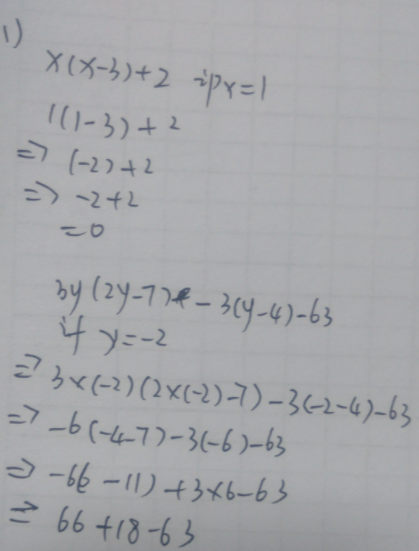 1)
x(x-3)+2 if x=1
1(1-3)+2
=> (-2)+2
=> -2+2
=0
3y(2y-7)-3(y-4)-63
if y=-2
=> 3×(-2)(2×(-2)-7)-3(-2-4)-63
=> -6(-4-7)-3(-6)-63
=> -6(-11)+3×6-63
=> 66+18-63